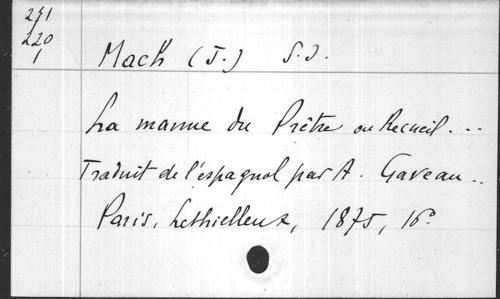 271
220
1
Mach (J.) S.J.
La manne du Prêtre ou Recueil...
Traduit de l'espagnol par A. Gaveau..
Paris, Lethielleux, 1875, 16º